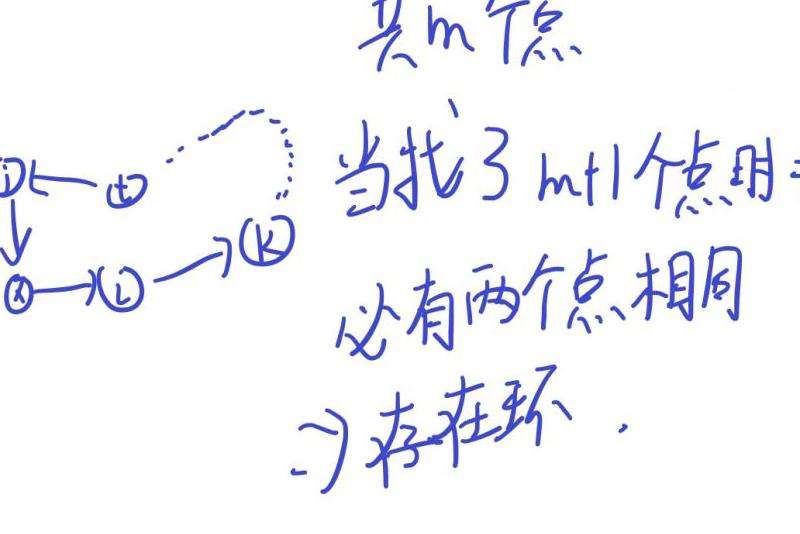 共m个点
当找了m+1个点时
必有两个点相同
j t
x i k
=>存在环.